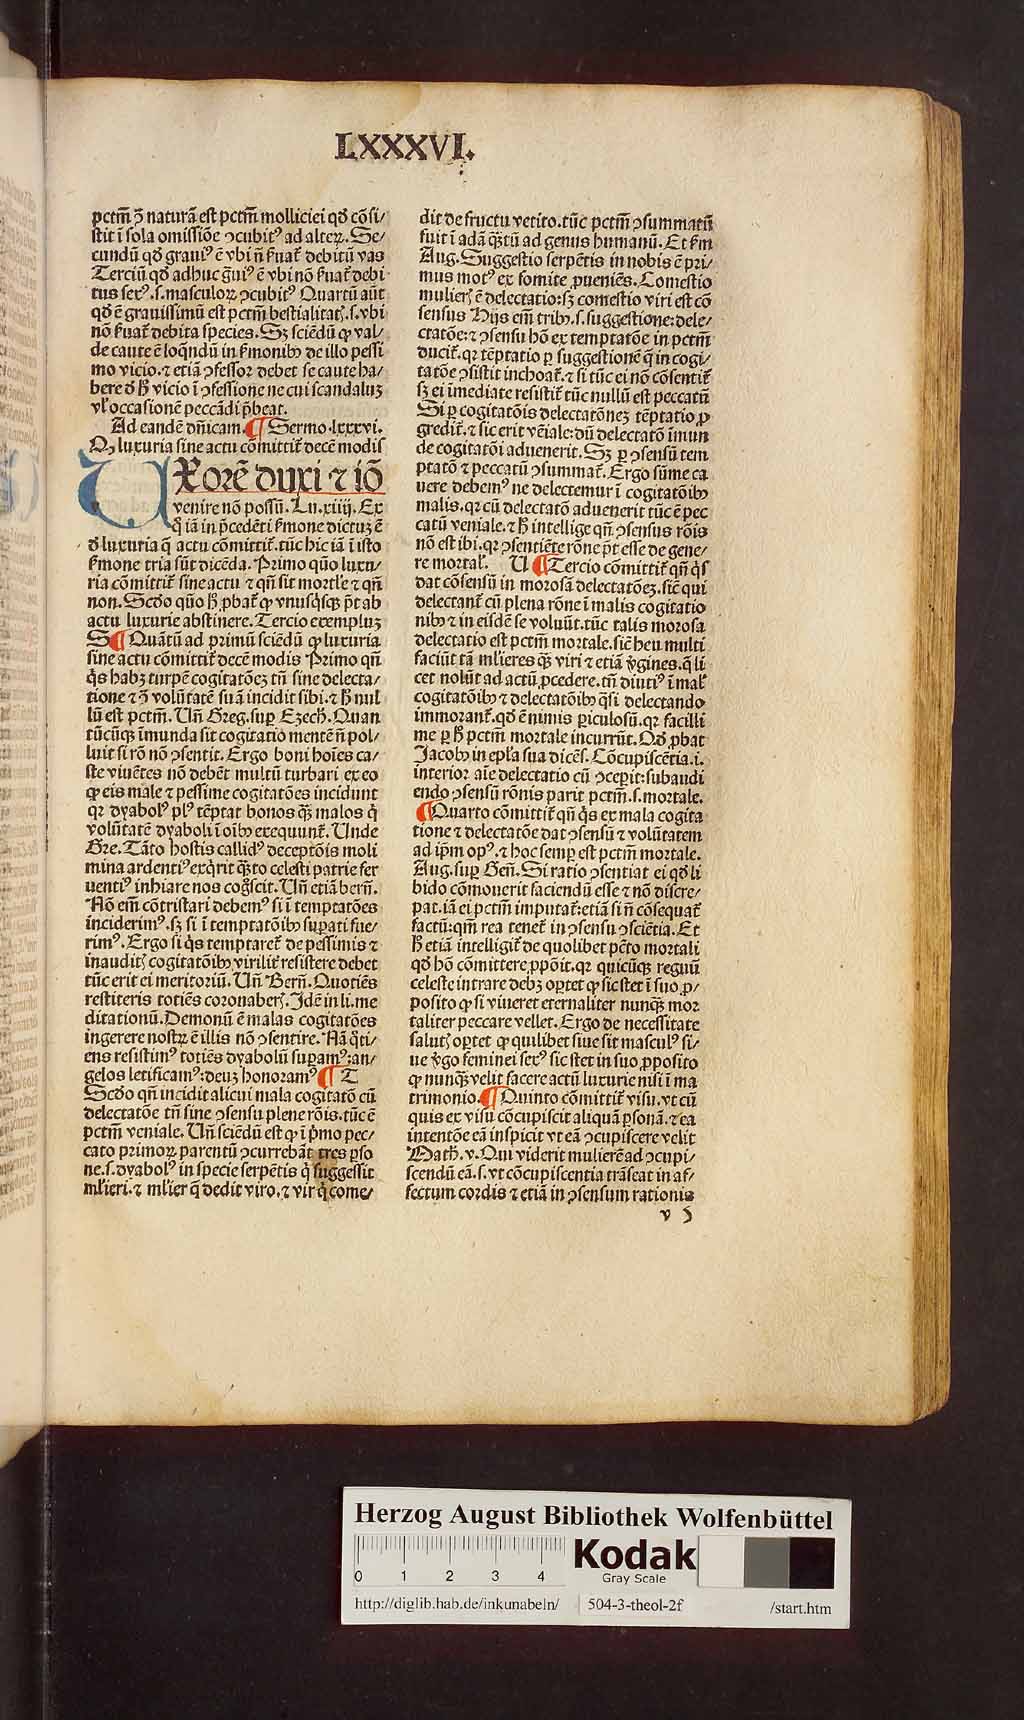 LXXXVI.
pctm̄ ꝯ̄ naturā est pctm̄ molliciei qd̓ cōsi/
stit ī sola omissiōe ꝯcubitꝰ ad alteꝝ. Se/
cundū qd̓ grauiꝰ ē vbi n̄ ẜuat̄ debitū vas
Terciū qd̓ adhuc g̓uiꝰ ē vbi nō ẜuat̄ debi
tus sexꝰ.s.masculoꝝ ꝯcubitꝰ Quartū aūt
qd̓ ē grauissimū est pctm̄ bestialitatꝭ.s.vbi
nō ẜuat̄ debita species. Sꝫ sciēdū ꝙ val/
de caute ē loq̄ndū in ẜmonibꝰ de illo pessi
mo vicio.⁊ etiā ꝯfessor debet se caute ha/
bere d̓ h̄ vicio ī ꝯfessione ne cui scandaluꝫ
vl̓ occasionē peccādi p̄beat.
Ad eandē dn̄icam. ¶ Sermo.lxxxvi.
Qꝫ luxuria sine actu cōmittit̄ decē modis
UXorē duxi ⁊ iō
venire nō possū. Lu.xiiij. Ex
q̊ iā in p̄cedēti ẜmone dictuꝫ ē
d̓ luxuria q̄ actu cōmittit̄.tūc hic iā ī isto
ẜmone tria sūt dicēda. Primo quō luxu/
ria cōmittit̄ sine actu ⁊ qn̄ sit mortl̓e ⁊ qn̄
non. Scd̓o quō h̄ ꝓbat̄ ꝙ vnusq̇sqꝫ pt̄ ab
actu luxurie abstinere. Tercio exempluꝫ
S ¶ Quātū ad primū sciēdū ꝙ luxuria
sine actu cōmittit̄ decē modis Primo qn̄
q̇s habꝫ turpē cogitatōeꝫ tn̄ sine delecta/
tione ⁊ ꝯ̄ volūtatē suā incidit sibi.⁊ h̄ nul
lū est pctm̄. Un̄ Greg.suꝑ Ezech̄. Quan
tūcūqꝫ īmunda sit cogitatio mentē n̄ pol/
luit si rō nō ꝯsentit. Ergo boni hoīes ca/
ste viuētes nō debēt multū turbari ex eo
ꝙ eis male ⁊ pessime cogitatōes incidunt
qr dyabolꝰ plꝰ tēptat bonos qꝫ malos q̇
volūtatē dyaboli ī oībꝰ exequunt̄. Unde
Gre. Tāto hostis callidꝰ deceptōis moli
mina ardentiꝰ exq̇rit qꝫto celesti patrie fer
uentiꝰ inhiare nos cog̓scit. Un̄ etiā bern̄.
Nō em̄ cōtristari debemꝰ si ī temptatōes
inciderimꝰ.sꝫ si ī temptatōibꝰ suꝑati fue/
rimꝰ. Ergo si q̇s temptaret̄ de pessimis ⁊
inauditꝭ cogitatōibꝰ virilit̄ resistere debet
tūc erit ei meritoriū. Un̄ Bern̄. Quotiēs
restiteris totiēs coronaberꝭ. Idē in li. me
ditationū. Demonū ē malas cogitatōes
ingerere nostꝝ ē illis nō ꝯsentire. Nā q̊ti/
ens resistimꝰ totiēs dyabolū suꝑamꝰ:an/
gelos letificamꝰ:deuꝫ honoramꝰ ¶ T
Scd̓o qn̄ incidit alicui mala cogitatō cū
delectatōe tn̄ sine ꝯsensu plene rōis.tūc ē
pctm̄ veniale. Un̄ sciēdū est ꝙ ī p̓mo pec/
cato primoꝝ parentū ꝯcurrebāt tres ꝑso
ne.s.dyabolꝰ in specie serpētis q̇ suggessit
ml̓ieri.⁊ ml̓ier q̄ dedit viro.⁊ vir q̇ come/
dit de fructu vetito.tūc pctm̄ ꝯsummatū
fuit ī adā qꝫtū ad genus humanū. Et ẜm
Aug. Suggestio serpētis in nobis ē pri/
mus motꝰ ex fomite ꝓueniēs. Comestio
mulierꝭ ē delectatio:sꝫ comestio viri est cō
sensus Hijs em̄ tribꝰ.s.suggestione:dele/
ctatōe:⁊ ꝯsensu hō ex temptatōe in pctm̄
ducit̄.qr tēptatio ꝑ suggestionē q̄ in cogi/
tatōe ꝯsistit inchoat̄.⁊ si tūc ei nō cōsentit̄
sꝫ ei īmediate resistit̄ tūc nullū est peccatū
Si ꝑ cogitatōis delectatōneꝫ tēptatio ꝓ
gredit̄.⁊ sic erit vēiale:dū delectatō īmun
de cogitatōi aduenerit. Sꝫ ꝑ ꝯsensū tem
ptatō ⁊ peccatū ꝯsummat̄. Ergo sūme ca
uere debemꝰ ne delectemur ī cogitatōibꝰ
malis.qr cū delectatō aduenerit tūc ē pec
catū veniale.⁊ h̄ intellige qn̄ ꝯsensus rōis
nō est ibi.qr ꝯsentiēte rōne pt̄ esse de gene/
re mortal̓. U ¶ Tercio cōmittit̄ qn̄ q̇s
dat cōsensū in morosā delectatōeꝫ.sic̄ qui
delectant̄ cū plena rōne ī malis cogitatio
nibꝰ ⁊ in eisdē se voluūt.tūc talis morosa
delectatio est pctm̄ mortale.sic̄ heu multi
faciūt tā ml̓ieres qꝫ viri ⁊ etiā v̓gines.q̄ li
cet nolūt ad actū ꝓcedere.tn̄ diutiꝰ ī mal̓
cogitatōibꝰ ⁊ delectatōibꝰ q̄si delectando
immorant̄.qd̓ ē nimis ꝑiculosū.qr facilli
me ꝑ h̄ pctm̄ mortale incurrūt. Qd̓ ꝓbat
Jacobꝰ in epl̓a sua dicēs. Cōcupiscētia.i.
interior aīe delectatio cū ꝯceꝑit:subaudi
endo ꝯsensū rōnis parit pctm̄.s.mortale.
¶ Quarto cōmittit̄ qn̄ q̇s ex mala cogita
tione ⁊ delectatōe dat ꝯsensū ⁊ volūtatem
ad ip̄m opꝰ.⁊ hoc semꝑ est pctm̄ mortale.
Aug. suꝑ Gen̄. Si ratio ꝯsentiat ei qd̓ li
bido cōmouerit faciendū esse ⁊ nō discre/
pat.iā ei pctm̄ imputat̄:etiā si n̄ cōsequat̄
factū:qm̄ rea tenet̄ in ꝯsensu ꝯsciētia. Et
h̄ etiā intelligit̄ de quolibet pctō mortali
qd̓ hō cōmittere ꝓpōit.qr quicūqꝫ regnū
celeste intrare debꝫ oꝑtet ꝙ sic stet ī suo ꝓ/
posito ꝙ si viueret eternaliter nunqꝫ mor
taliter peccare vellet. Ergo de necessitate
salutꝭ oꝑtet ꝙ quilibet siue sit masculꝰ si/
ue v̓go feminei sexꝰ sic stet in suo ꝓposito
ꝙ nunqꝫ velit facere actū luxurie nisi ī ma
trimonio. ¶ Quinto cōmittit̄ visu.vt cū
quis ex visu cōcupiscit aliquā ꝑsonā.⁊ ea
intentōe eā inspicit vt eā ꝯcupiscere velit
Math̄.v. Qui viderit mulierē ad ꝯcupi/
scendū eā.s.vt cōcupiscentia trāseat in af/
fectum cordis ⁊ etiā in ꝯsensum rationis
v 5
Herzog August Bibliothek Wolfenbüttel
0 1 2 3 4
Kodak
Gray Scale
http://diglib.hab.de/inkunabeln/ 504-3-theol-2f /start.htm